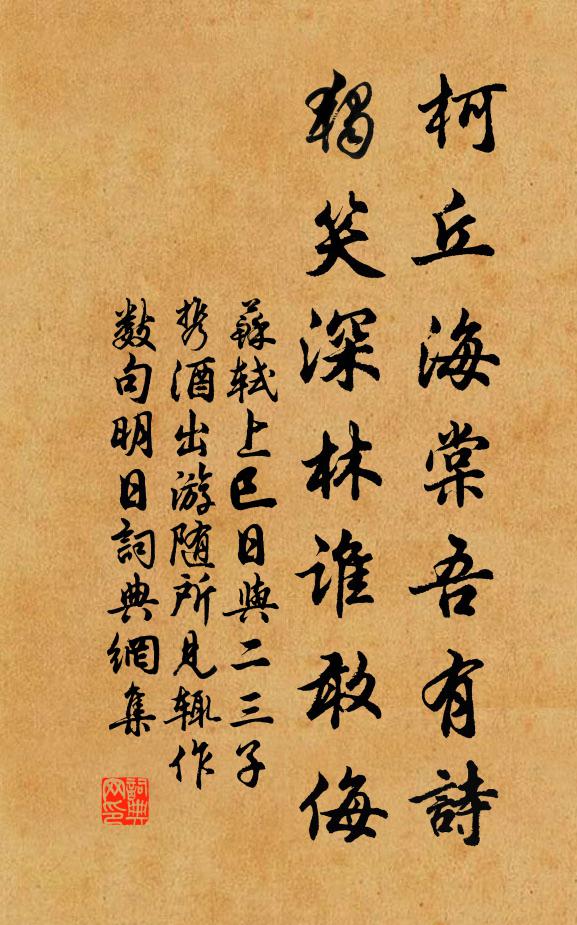 柯丘海棠吾有詩
獨笑深林谁敢侮
蘇軾上巳日與二三子
携酒出游随所見輒作
數句明日詞典網集
詞典网印